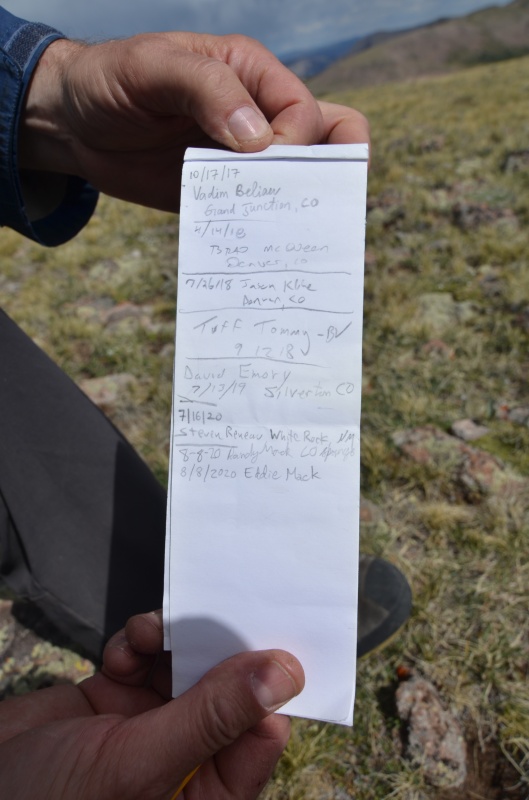 10/17/17
Vadim Beliaev
Grand Junction, CO
4/14/18
BRAD McQueen
Denver,
7/26/18 Jason Kline
Denver, CO
Tuff Tommy - BV
9 12 18
David Emory
7/13/19 Silverton CO
7/16/20
Steven Reneau White Rock, NM
8-8-20 Randy Mack CO Springs
8/8/2020 Eddie Mack